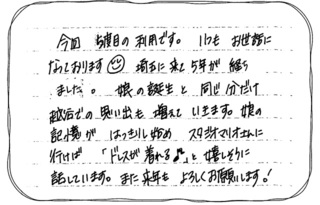 今回 5度目の利用です。いつも お世話に
なっております☺ 埼玉に来て5年が経ち
ました。娘の誕生と 同じ分だけ
越谷での 思い出も 増えて いきます。娘の
記憶が はっきりし始め スタジオマリオさんに
行けば 「ドレスが着れる♪」と 嬉しそうに
話しています。また来年も よろしくお願いします!